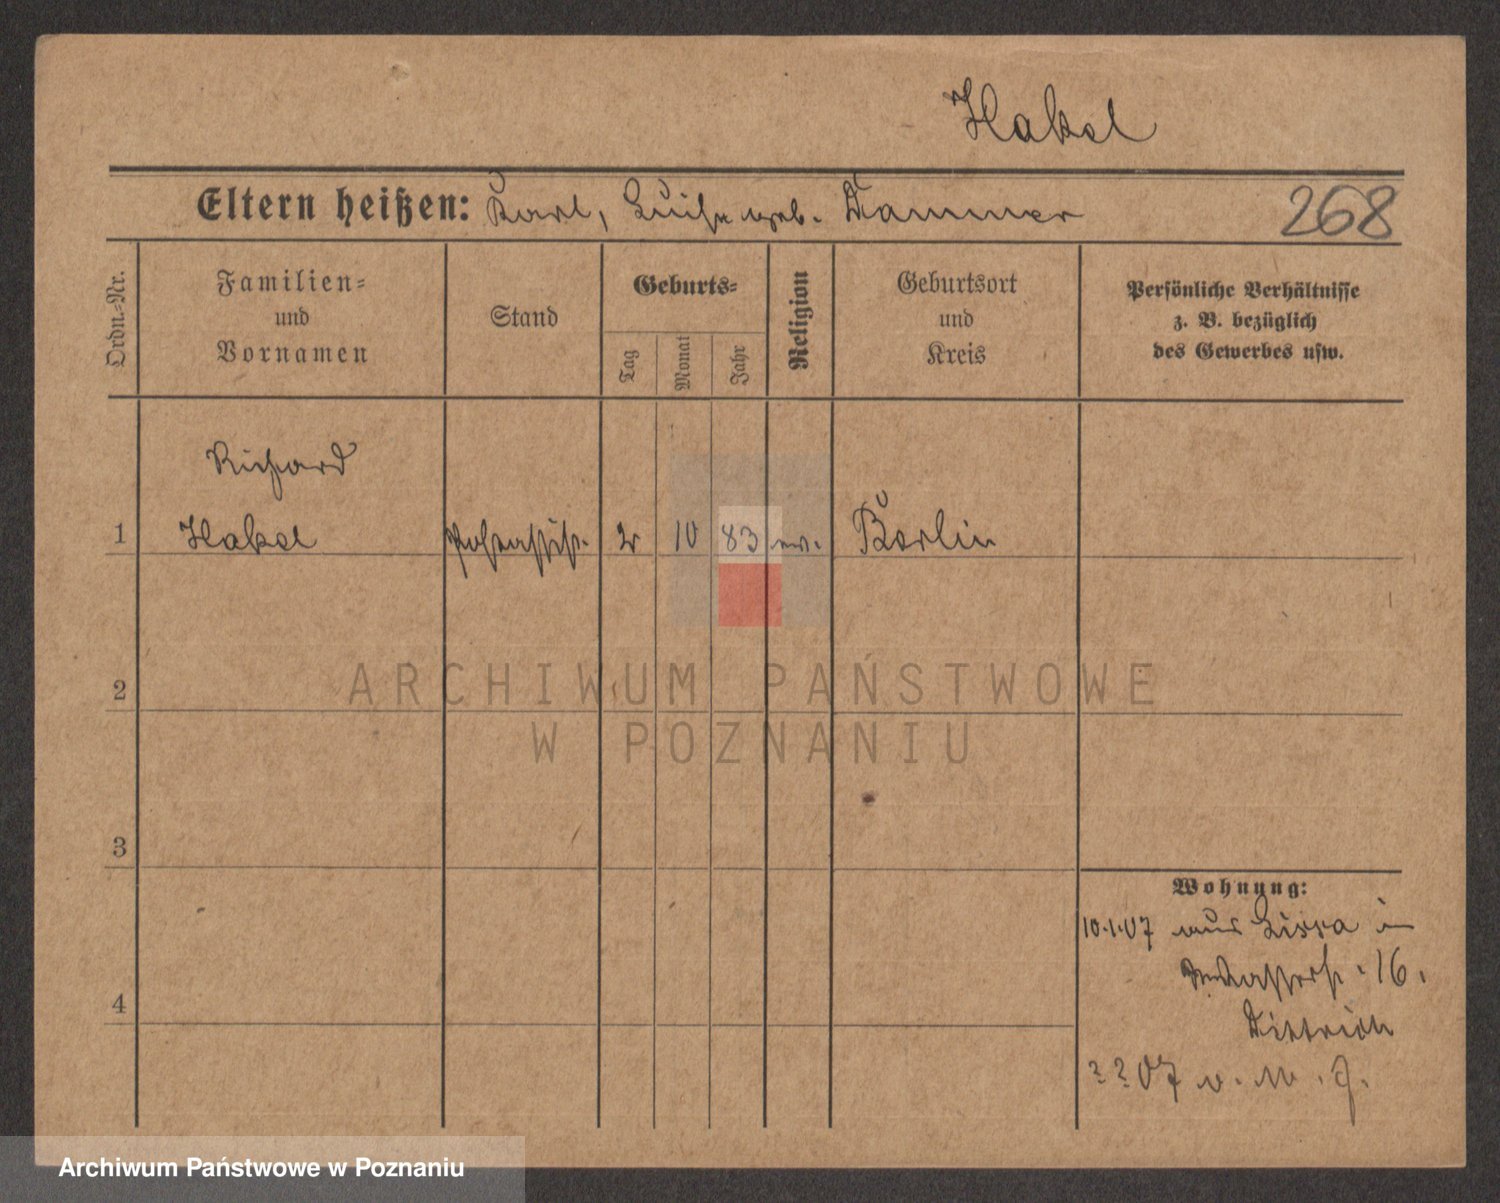 Hakel
Eltern heißen: Karl, Luise geb. Dammer
268
Ordn.-Nr.
Familien-
und
Vornamen
Stand
Geburts-
Tag
Monat
Jahr
Religion
Geburtsort
und
Kreis
Persönliche Verhältnisse
z. B. bezüglich
des Gewerbes usw.
Richard
1 Hakel 2 10 83 ev. Berlin
ARCHIWUM PAŃSTWOWE
W POZNANIU
2
3
4
Wohnung:
10.1.07 aus Lissa in
16.
Dittrich
07
Archiwum Państwowe w Poznaniu